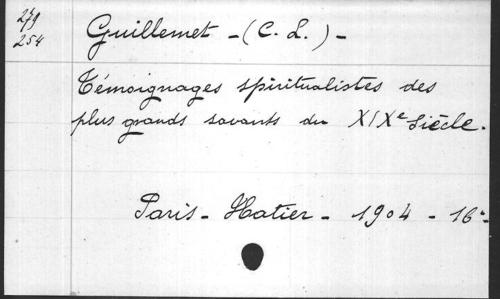 279
254
Guillemet - (C. L.) -
Témoignages spiritualistes des
plus grands savants du XIXe siècle.
Paris - Hatier - 1904 - 16°-